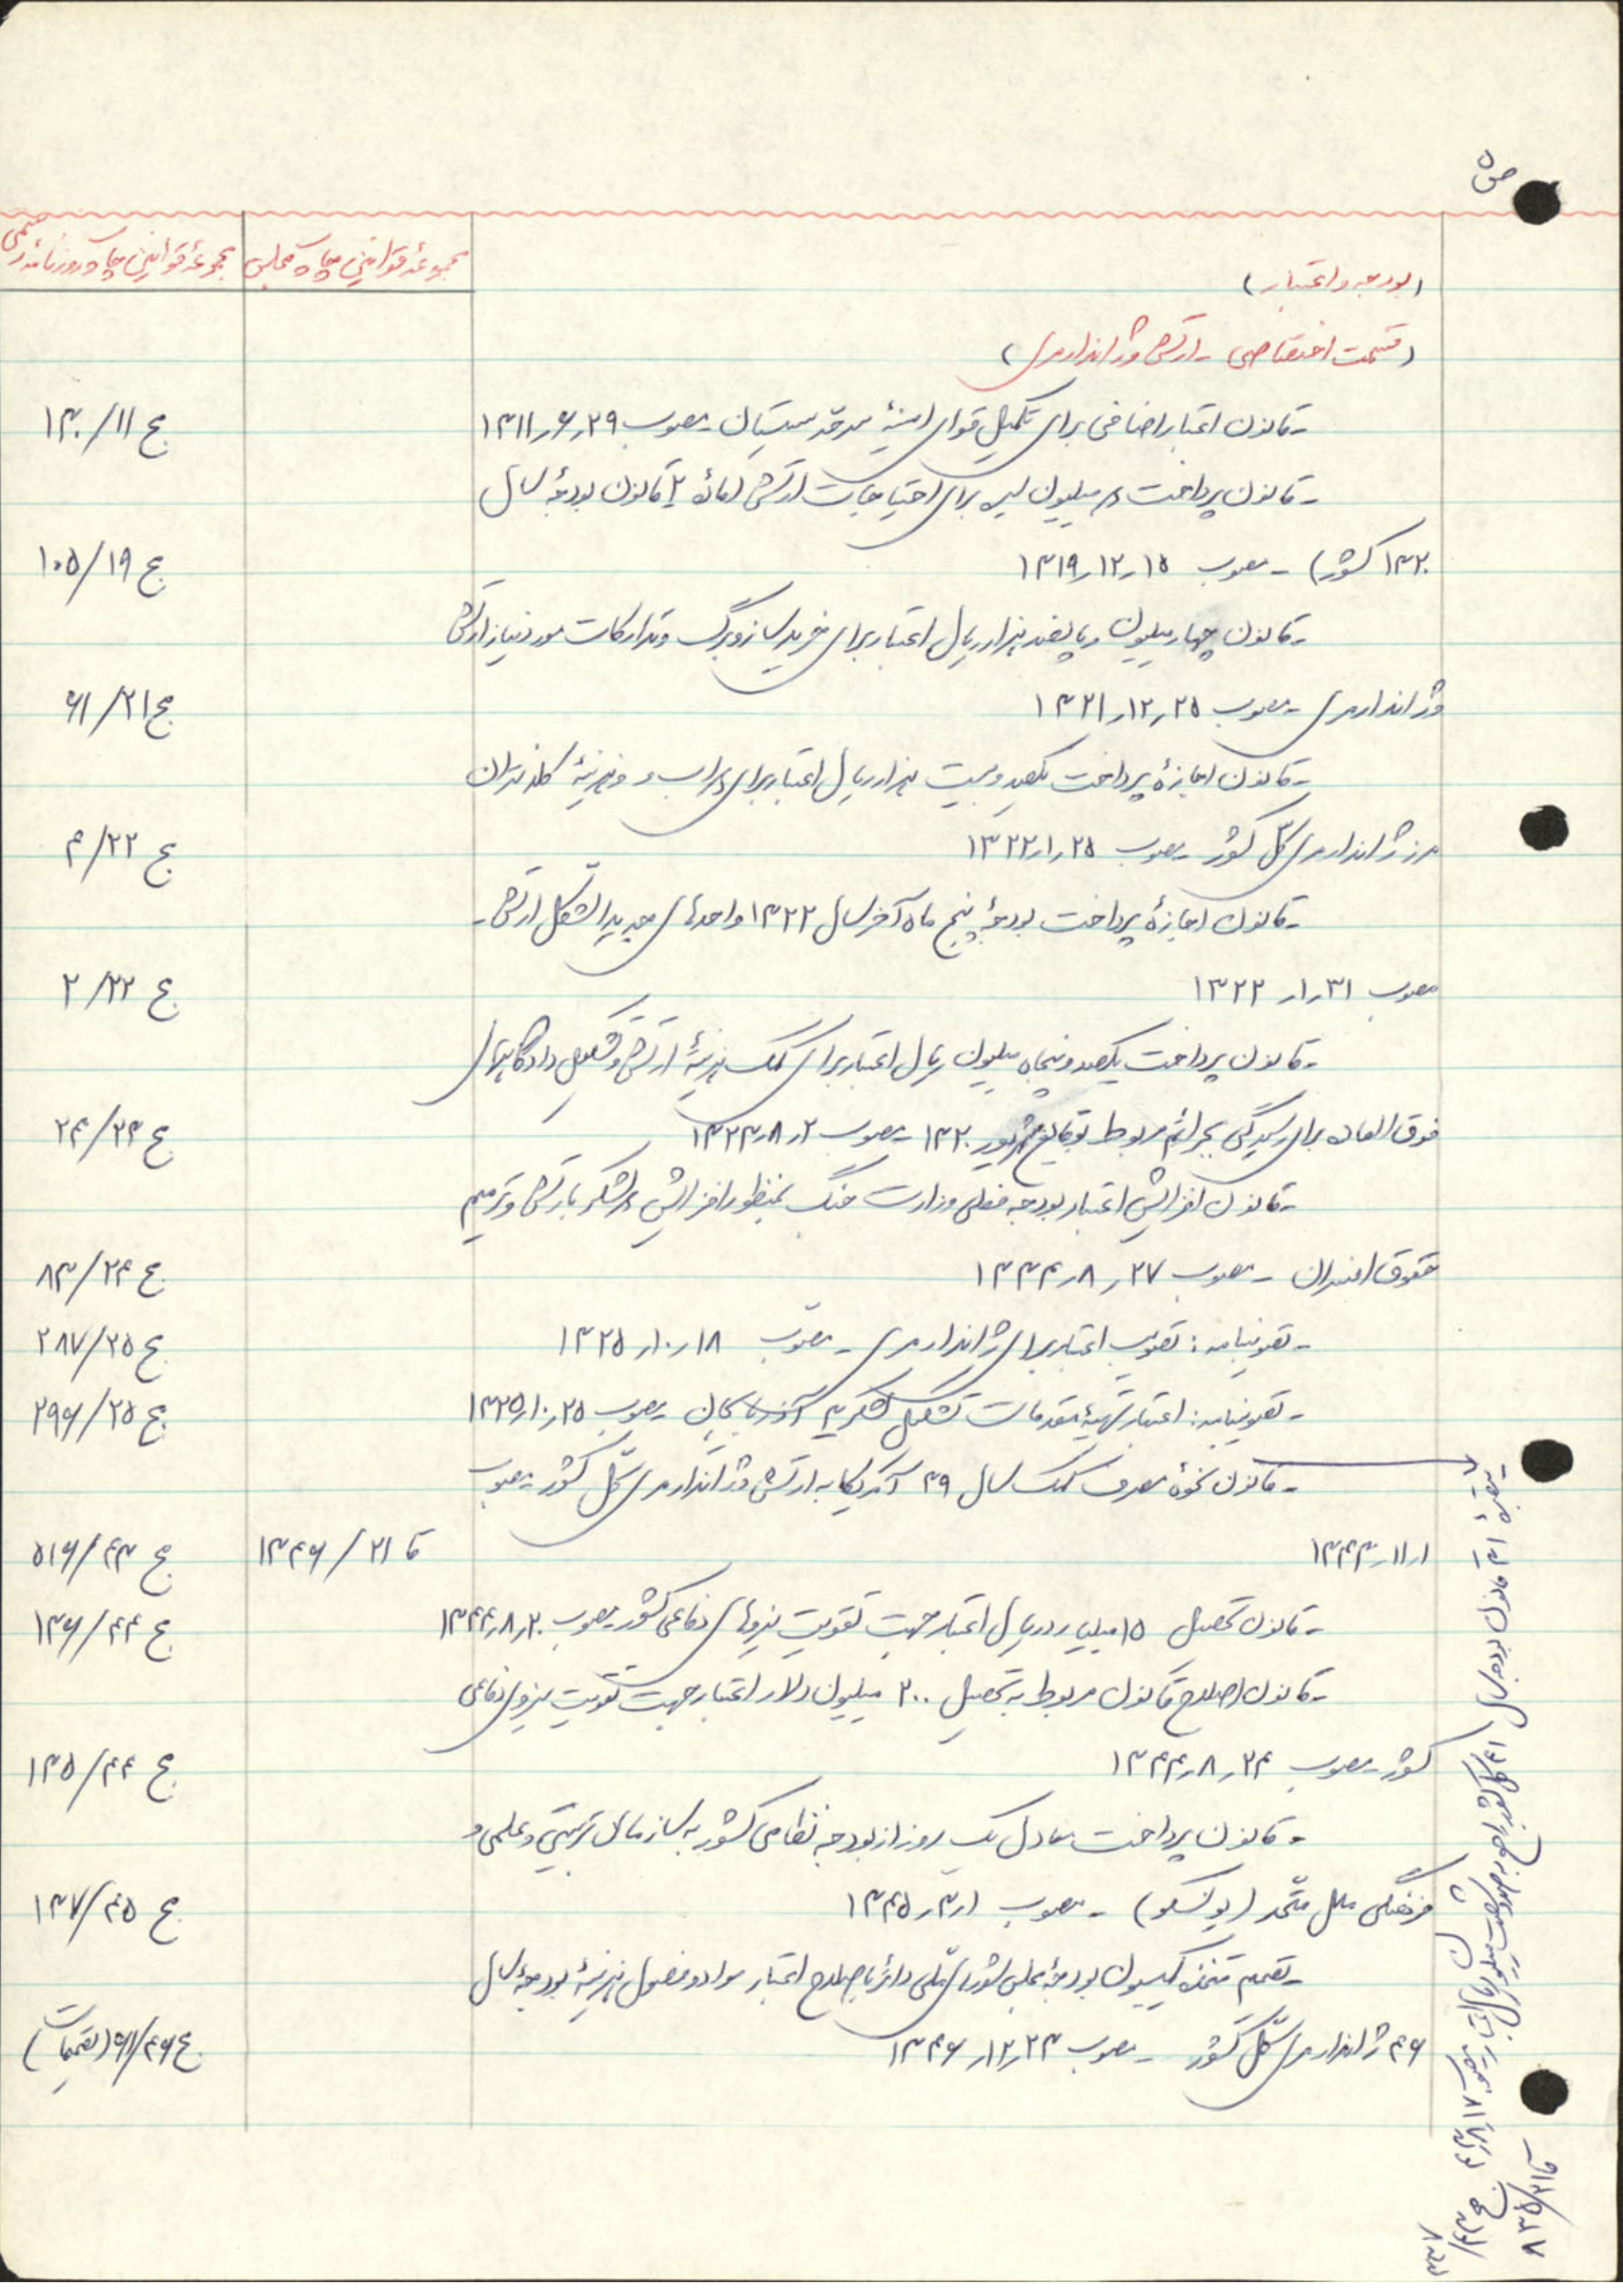 ص ۵
مجموعهٔ قوانین چاپ مجلس
مجموعهٔ قوانین چاپ روزنامه رسمی
(بودجه و اعتبار)
(قسمت اختصاصی - ارتش و ژاندارمری)
- قانون اعتبار اضافی برای تکمیل قوای امنیهٔ سرحد سیستان - مصوب ۲۹ر۶ر۱۳۱۱
ج ۱۱/۱۳۰
- قانون پرداخت میلیون لیره برای احتیاجات ارتش (مادهٔ قانون بودجهٔ سال
۱۳۲۰ کشور) - مصوب ۱۵ر۱۲ر۱۳۱۹
ج ۱۹/۱۰۵
- قانون چهار میلیون و پانصد هزار ریال اعتبار برای خرید ساز و برگ و تدارکات مورد نیاز ارتش
و ژاندارمری - مصوب ۲۵ر۱۲ر۱۳۲۱
ج ۲۱/۶۱
- قانون اجازهٔ پرداخت یکصد و بیست هزار ریال اعتبار برای و هزینهٔ
ژاندارمری کل کشور - مصوب ۲۵ر۱ر۱۳۲۲
ج ۲۲/۴
- قانون اجازهٔ پرداخت بودجهٔ پنج ماه آخر سال ۱۳۲۲ واحدهای جدید التشکیل ارتش -
مصوب ۳۱ر۱ر۱۳۲۲
ج ۲۲/۲
- قانون پرداخت یکصد و پنجاه میلیون ریال اعتبار برای کمک هزینهٔ ارتش و تشکیل دادگاههای
فوق العاده برای رسیدگی بجرائم مربوط بوقایع شهریور ۱۳۲۰ - مصوب ۲ر۸ر۱۳۲۳
ج ۲۳/۲۴
- قانون افزایش اعتبار بودجه فعلی وزارت جنگ بمنظور افزایش لشکر بارتش و ترمیم
حقوق افسران - مصوب ۲۷ر۸ر۱۳۲۴
ج ۲۴/۸۳
- تصویبنامه: تصویب اعتبار برای ژاندارمری - مصوب ۱۸ر۱۰ر۱۳۲۵
ج ۲۵/۲۸۷
- تصویبنامه: اعتبار تهیهٔ مقدمات تشکیل لشکر ۳ آذربایجان - مصوب ۲۵ر۱۰ر۱۳۲۵
ج ۲۵/۲۹۶
- قانون نحوهٔ مصرف کمک سال ۳۹ آمریکا به ارتش و ژاندارمری کل کشور - مصوب
۱ر۱۱ر۱۳۴۳
قا ۲۱/۱۳۴۶
ج ۴۳/۵۱۶
- قانون تحصیل ۱۵ میلیارد ریال اعتبار جهت تقویت نیروهای دفاعی کشور - مصوب ۲۰ر۸ر۱۳۴۴
ج ۴۴/۱۳۶
- قانون اصلاح قانون مربوط به تحصیل ۲۰۰ میلیون دلار اعتبار جهت تقویت نیروی دفاعی
کشور - مصوب ۲۴ر۸ر۱۳۴۴
ج ۴۴/۱۳۵
- قانون پرداخت معادل یک روز از بودجه نظامی کشور به سازمان تربیتی و علمی و
فرهنگی ملل متحد (یونسکو) - مصوب ۱ر۳ر۱۳۴۵
ج ۴۵/۱۳۷
- تصمیم متخذه کمیسیون بودجهٔ مجلس شورای ملی دائر باصلاح اعتبار مواد و فصول هزینهٔ بودجهٔ سال
۴۶ ژاندارمری کل کشور - مصوب ۲۳ر۱۲ر۱۳۴۶
ج ۴۶/۶۱ (تصمیمات)
قانون بودجه سال ۴۱ کل کشور راجع به میلیون ریال اعتبار
قا ۲۱/۸۳۵